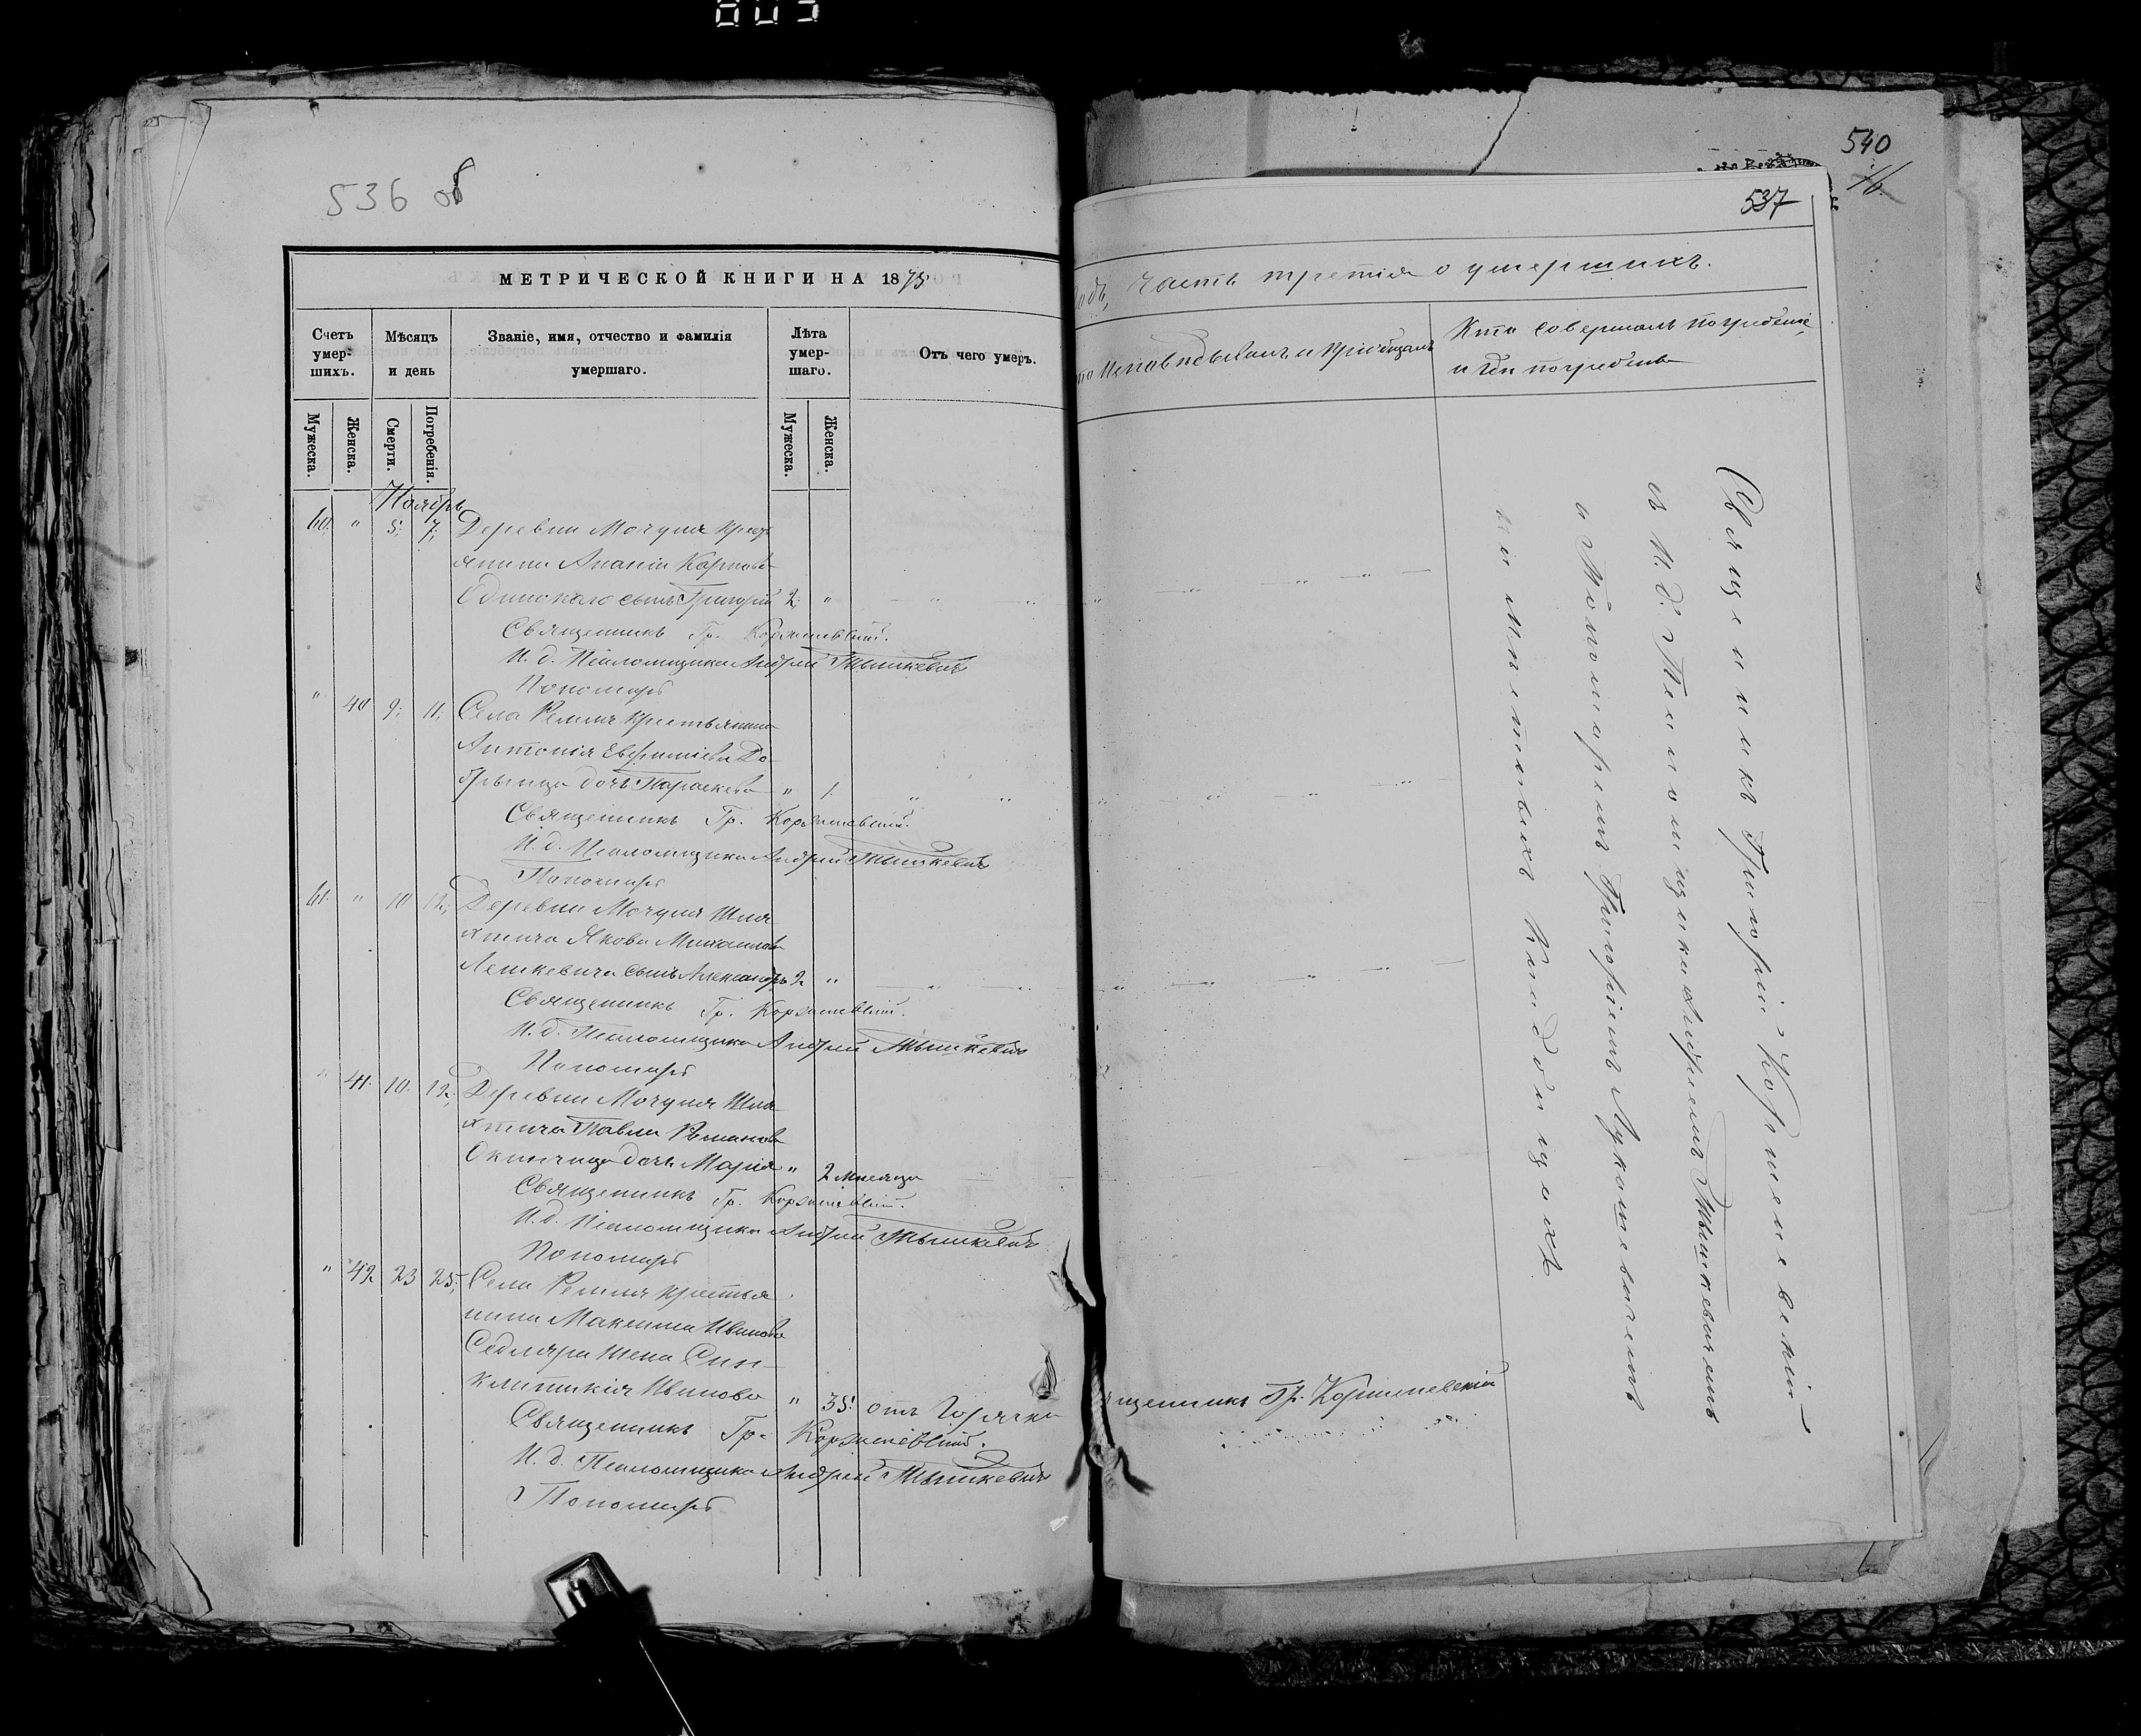 003
536 об
МЕТРИЧЕСКОЙ КНИГИ НА 1875
Счетъ умер- шихъ.
Мѣсяцъ и день
Званіе, имя, отчество и фамилія умершаго.
Лѣта умер- шаго.
Отъ чего умеръ.
Мужеска.
Женска.
Смерти.
Погребенія.
Мужеска.
Женска.
Ноябрь
60. " 5; 7; Деревни Мочуля крест
янина Ананіи Карпова
Одинокаго сынъ Григорій 2; "
Священникъ Гр. Коржиневскій.
И. д. Псаломщика Андрей Мышкевичъ
Пономарь
" 40 9; 11; Села Ремля крестьянина
Антонія Евфиміева До-
брынца дочь Параскева " 1.
Священникъ Гр. Коржиневскій.
И. д. Псаломщика Андрей Мышкевичъ
Пономарь
61. " 10 12; Деревни Мочуля Шля
хтича Якова Михаилова
Лешкевича сынъ Александръ 2 "
Священникъ Гр. Коржиневскій.
И. д. Псаломщика Андрей Мышкевичъ
Пономарь
" 41. 10. 12; Деревни Мочуля Шля
хтича Павла Романова
Окинчица дочь Марія " 2 месяца
Священникъ Гр. Коржиневскій.
И. д. Псаломщика Андрей Мышкевичъ
Пономарь
" 42 23 25; Села Ремля крестья
нина Максима Иванова
Седляра жена Син-
клитикія Иванова " 35. отъ Горячки
Священникъ Гр. Коржиневскій.
И. д. Псаломщика Андрей Мышкевичъ
Пономарь
540
537
одъ, часть третія о умершихъ.
то Исповѣдывалъ и пріобщалъ
Кто совершалъ погребеніе
и гдѣ погребены
Священникъ Григорій Коржиневскій
съ И. д. Псаломщика Андреемъ Мышкевичемъ
и Пономаремъ Григоріемъ Лукашевичемъ
на местныхъ Кладбищахъ
щенникъ Гр. Коржиневскій